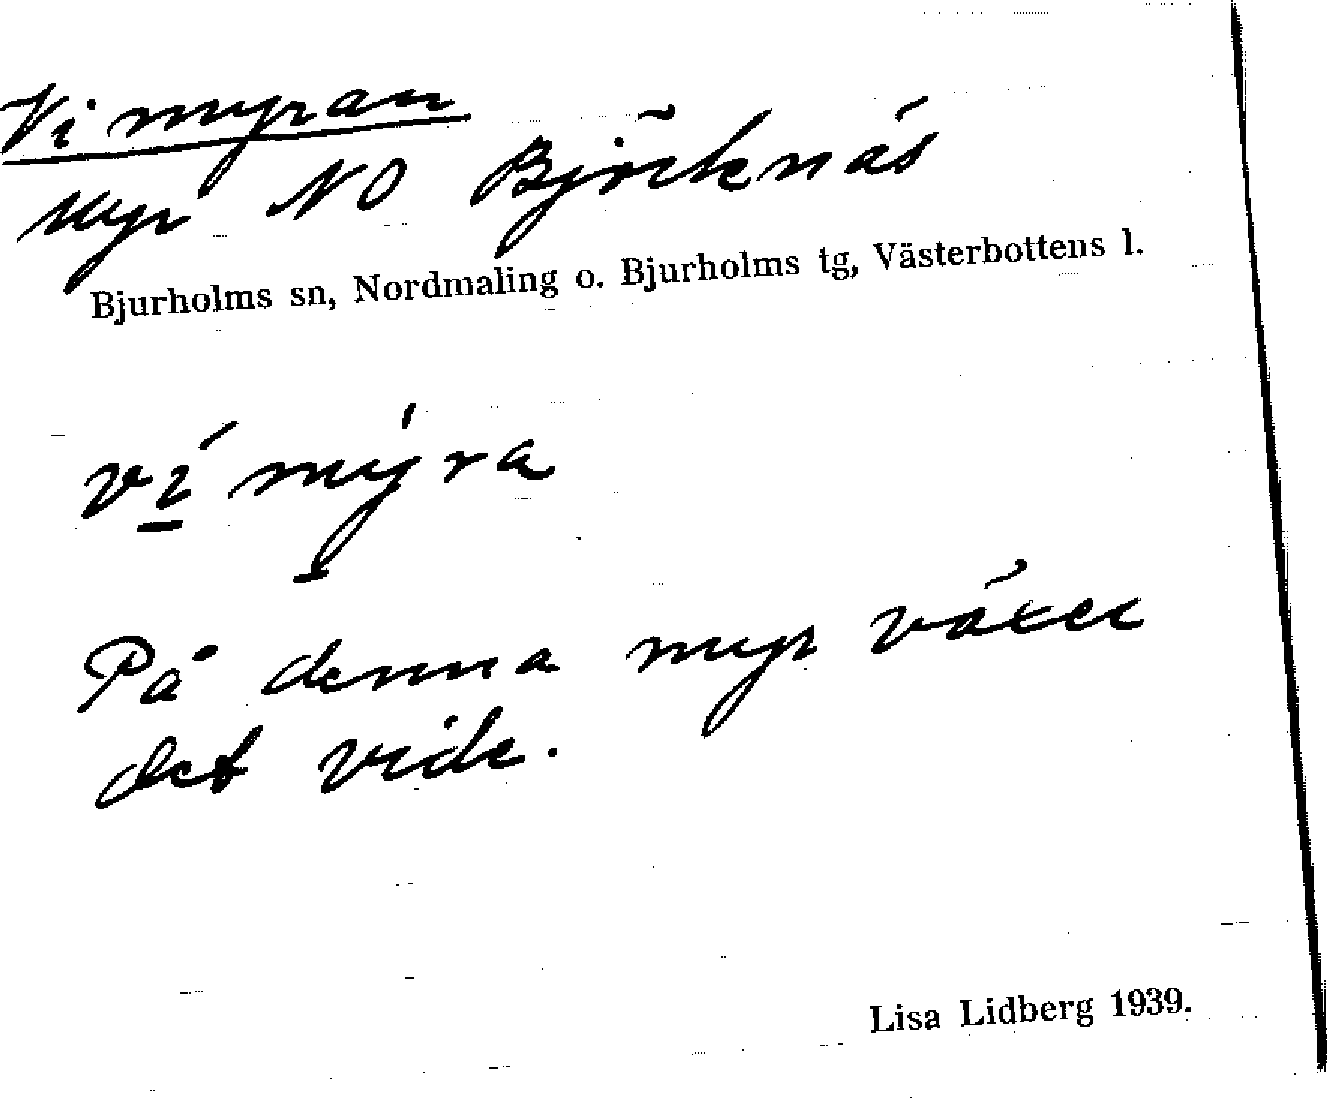 Vimyran
Myr NO Björknäs
Bjurholms sn, Nordmaling o. Bjurholms tg, Västerbottens l.
ví mýra
På denna myr växer
det vide.
Lisa Lidberg 1939.